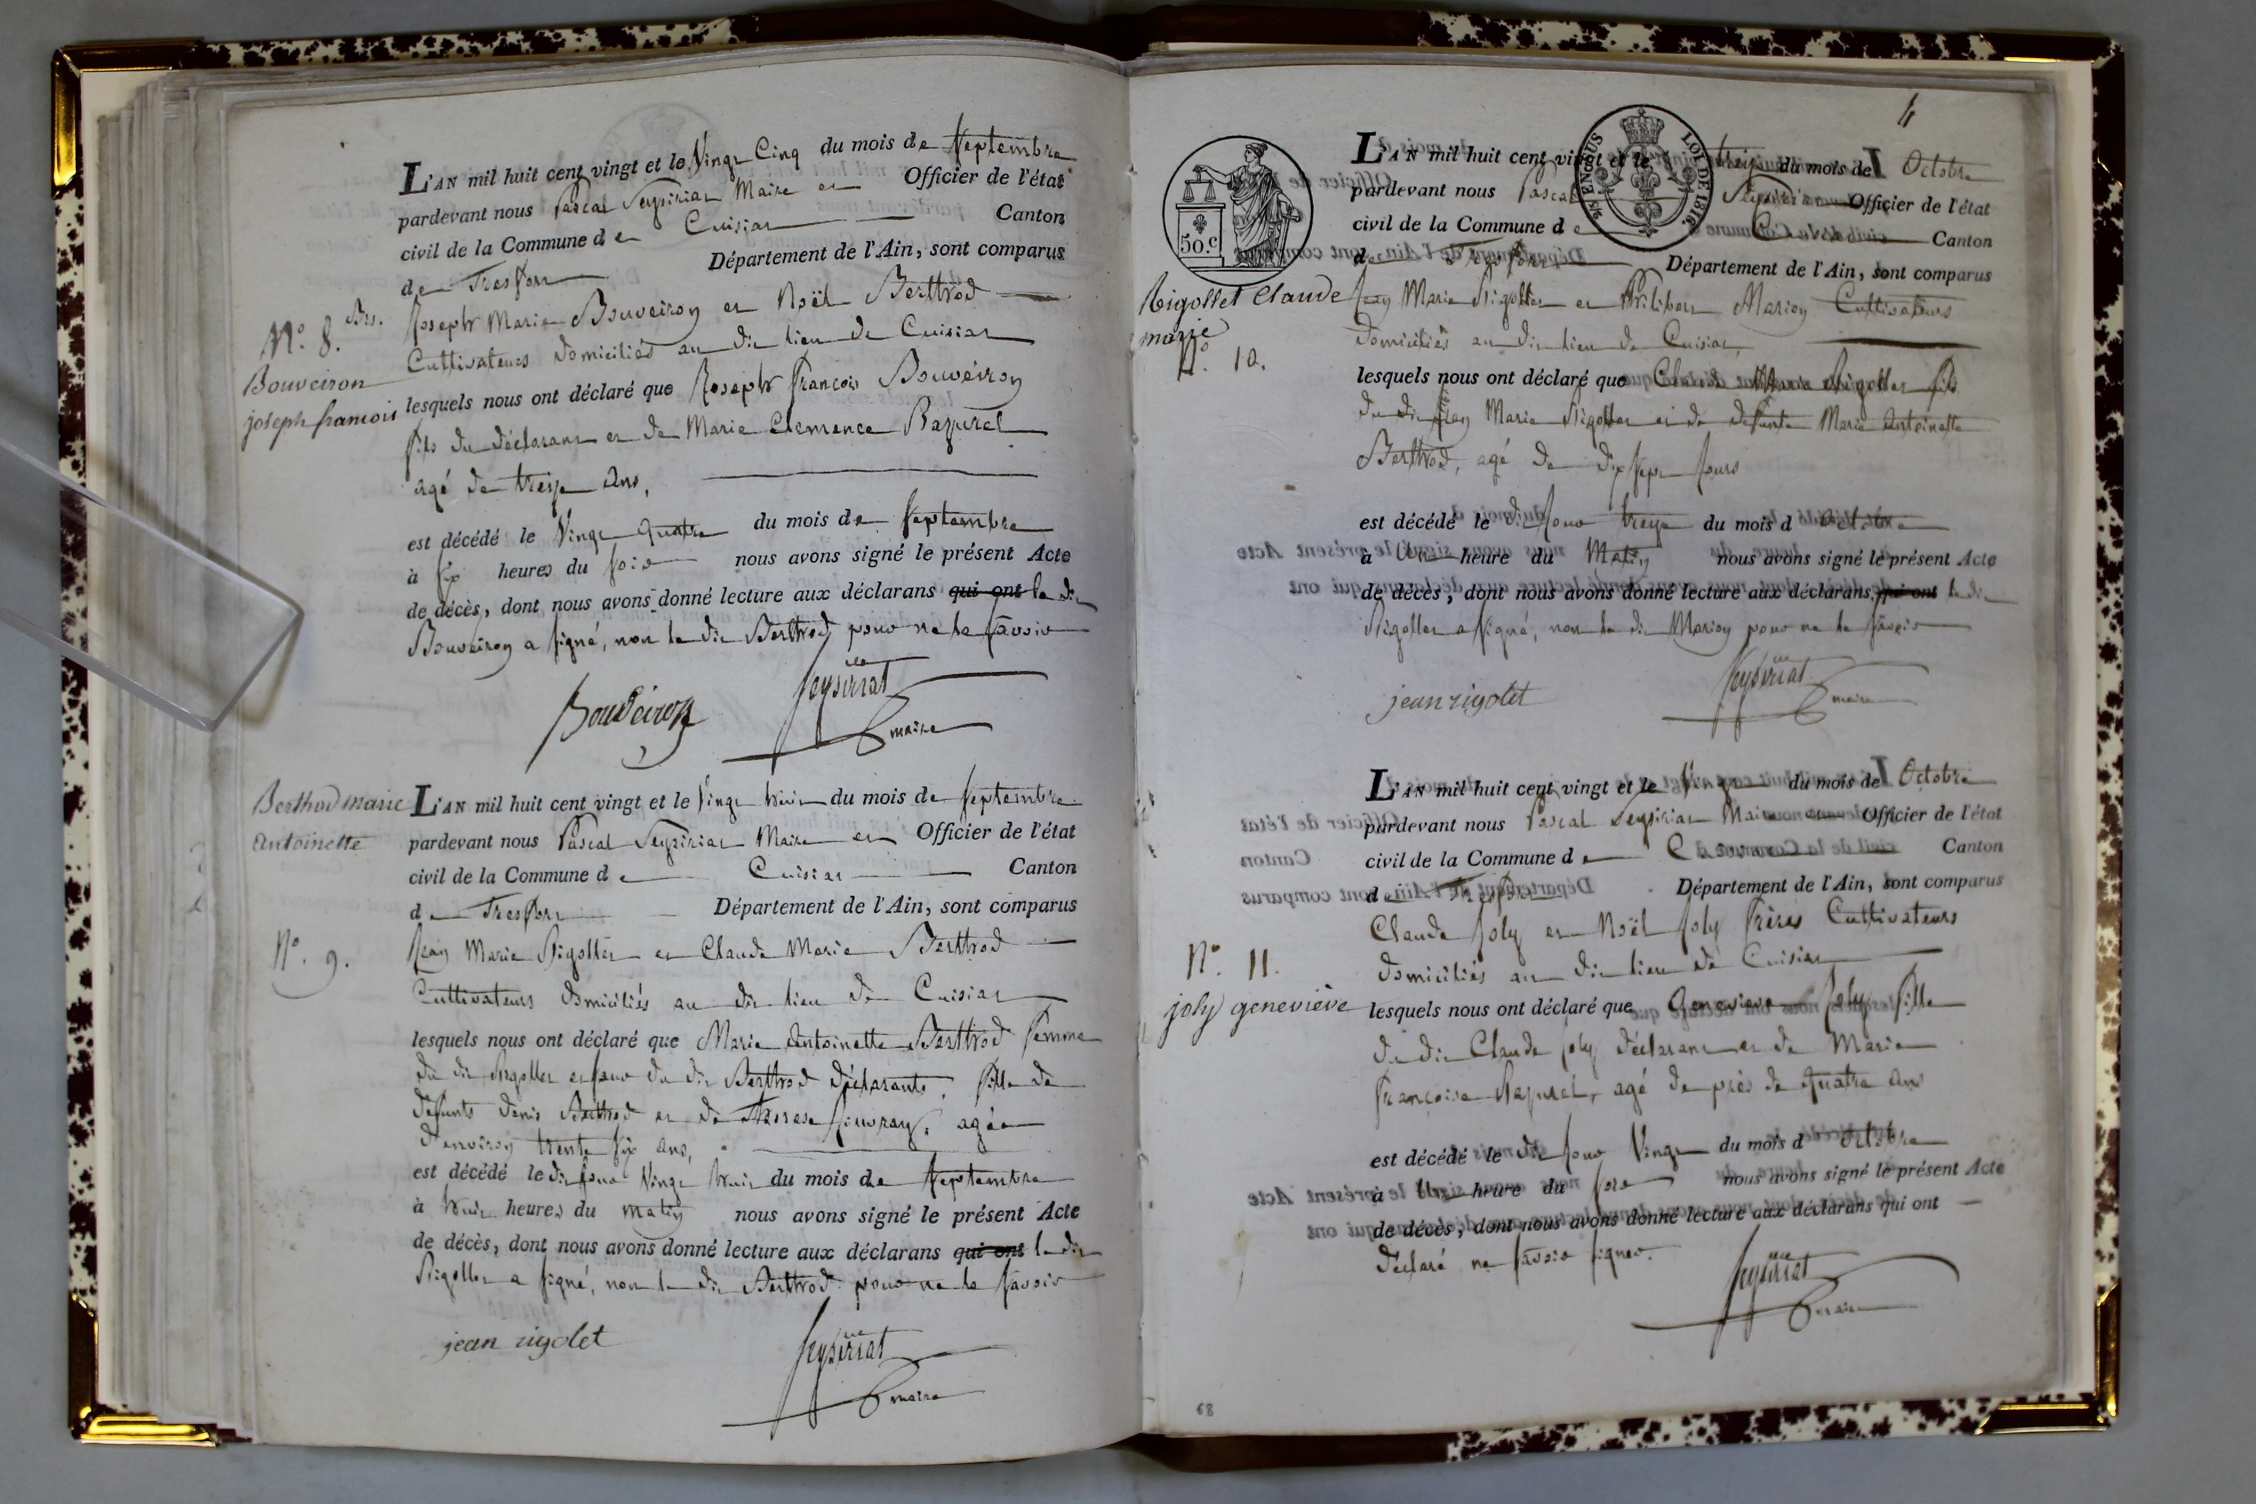 L'AN mil huit cent vingt et le Vingt Cinq du mois de Septembre
pardevant nous Pascal Seysiriat Maire et Officier de l'état
civil de la Commune de Cuisiat Canton
de Treffort Département de l'Ain, sont comparus
Joseph Marie Bouveiron et Noël Berthod
Nº. 8. Bis.
Cultivateurs domiciliés au dit lieu de Cuisiat
Bouveiron
joseph francois
lesquels nous ont déclaré que Joseph françois Bouveiron
fils du déclarant et de Marie Clemence Bazurel
agé de treize ans,
est décédé le Vingt Quatre du mois de Septembre
à six heures du soir nous avons signé le présent Acte
de décès, dont nous avons donné lecture aux déclarans qui ont le dit
Bouveiron a signé, non le dit Berthod pour ne le savoir
Bouveiron Seysiriat
maire
Berthod marie
Antoinette
L'AN mil huit cent vingt et le Vingt huit du mois de Septembre
pardevant nous Pascal Seysiriat Maire et Officier de l'état
civil de la Commune de Cuisiat Canton
de Treffort Département de l'Ain, sont comparus
Nº. 9.
Jean Marie Rigollet et Claude Marie Berthod
Cultivateurs domiciliés au dit lieu de Cuisiat
lesquels nous ont déclaré que Marie Antoinette Berthod femme
du dit Rigollet et sœur du dit Berthod déclarants, fille de
défunts denis Berthod et de agée
d'environ trente six ans,
est décédé le dit jour Vingt huit du mois de Septembre
à huit heures du matin nous avons signé le présent Acte
de décès, dont nous avons donné lecture aux déclarans qui ont le dit
Rigollet a signé, non le dit Berthod pour ne le savoir
jean rigolet Seysiriat
maire
4
50.c
LOI DE 1816.
L'AN mil huit cent vingt et le treize du mois de Octobre
pardevant nous Pascal Seysiriat Officier de l'état
civil de la Commune de Canton
de Treffort Département de l'Ain, sont comparus
Rigollet Claude
marie
Nº. 10.
Jean Marie Rigollet et Philibert Marion Cultivateurs
domiciliés au dit lieu de Cuisiat,
lesquels nous ont déclaré que Claude Marie Rigollet fils
du dit Jean Marie Rigollet et de défunte Marie Antoinette
Berthod, agé de dix sept jours
est décédé le dit jour treize du mois d'octobre
à Une heure du Matin nous avons signé le présent Acte
de décès, dont nous avons donné lecture aux déclarans, qui ont le dit
Rigollet a signé, non le dit Marion pour ne le savoir
jean rigolet Seysiriat
maire
L'AN mil huit cent vingt et le Vingt du mois de Octobre
pardevant nous Pascal Seysiriat Maire et Officier de l'état
civil de la Commune de Canton
de Treffort Département de l'Ain, sont comparus
Claude Joly et Noël Joly frères Cultivateurs
Nº. 11.
domiciliés au dit lieu de Cuisiat
joly geneviève
lesquels nous ont déclaré que Genevieve Joly fille
du dit Claude Joly déclarant et de Marie
françoise Bazurel, agé de près de Quatre ans
est décédé le dit jour Vingt du mois d'octobre
à Une heure du soir nous avons signé le présent Acte
de décès, dont nous avons donné lecture aux déclarans qui ont
déclaré ne savoir signer.
Seysiriat
maire
68